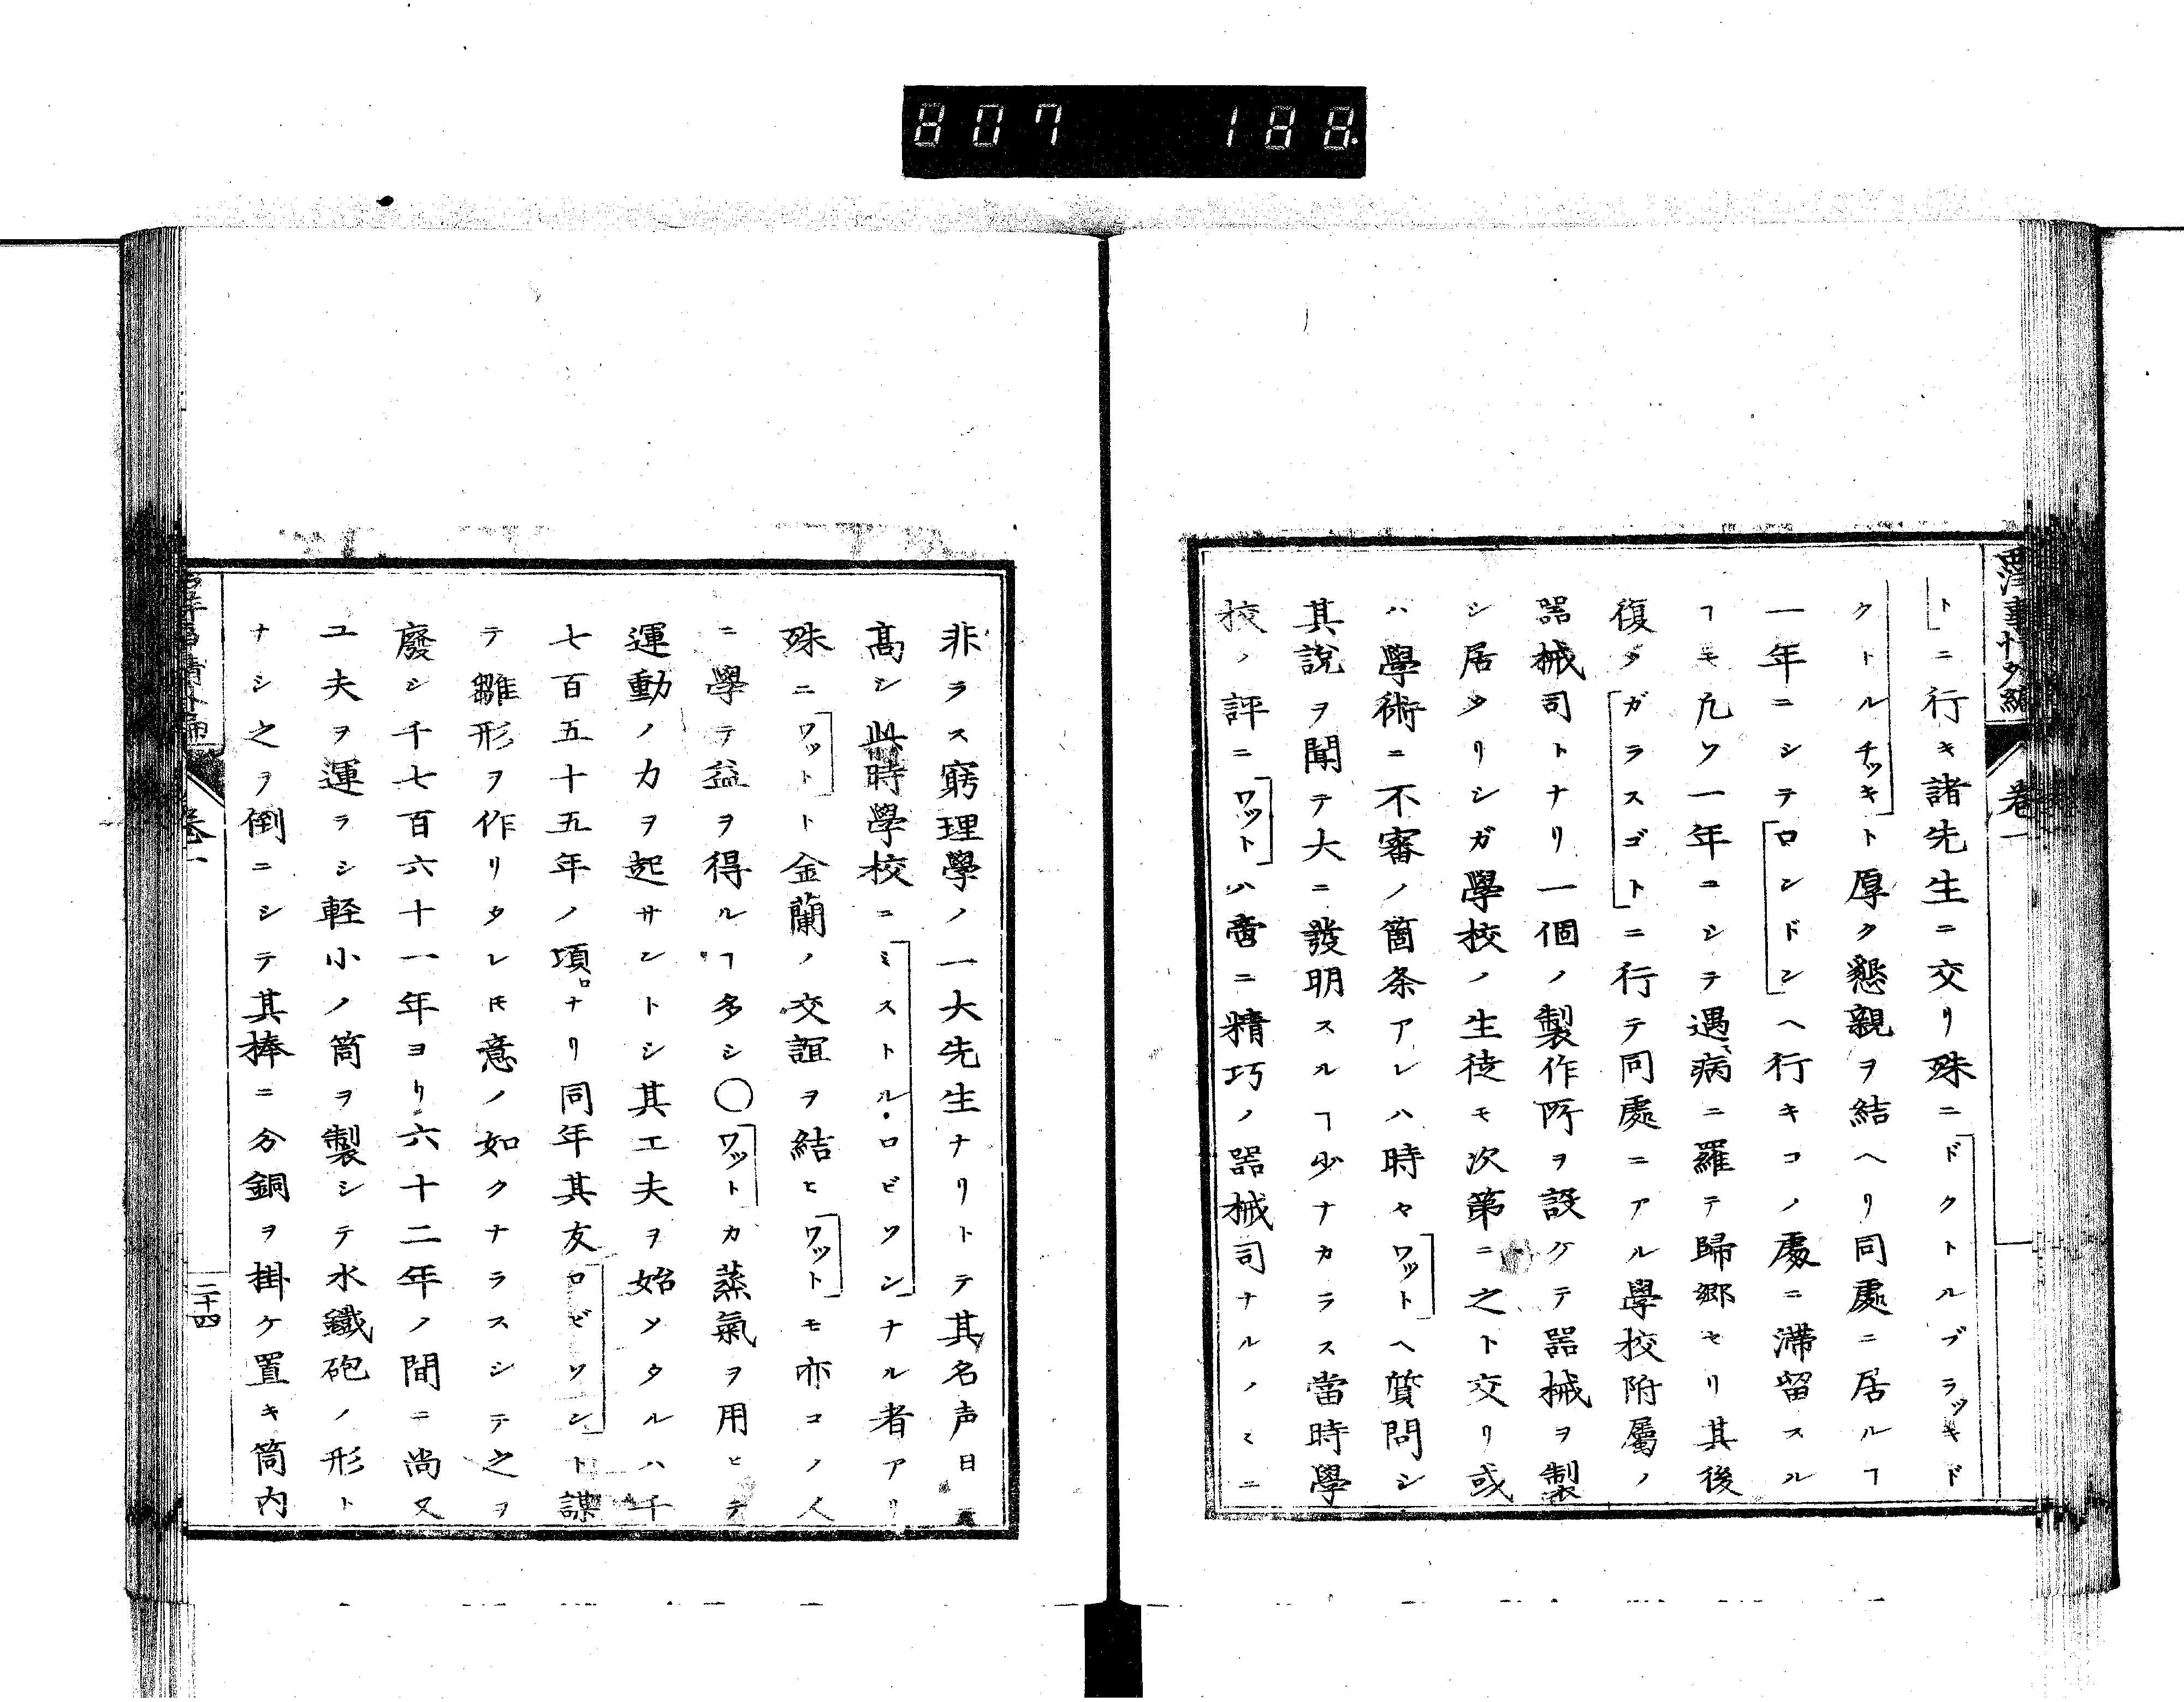 807 188
西洋事情外編 巻一
ト」ニ行キ諸先生ニ交リ殊ニ「ドクトルブラッキド
クトルヂッキ」ト厚ク懇親ヲ結ヘリ同處ニ居ルヿ
一年ニシテ「ロンドン」ヘ行キコノ處ニ滞留スル
ヿモ凡ソ一年ニシテ遇病ニ羅テ歸郷セリ其後
復タ「ガラスゴト」ニ行テ同處ニアル學校附屬ノ
器械司トナリ一個ノ製作所ヲ設ケテ器械ヲ製
シ居タリシガ學校ノ生徒モ次第ニ之ト交リ或
ハ學術ニ不審ノ箇条アレハ時々「ワット」ヘ質問シ
其説ヲ聞テ大ニ發明スルヿ少ナカラス當時學
校ノ評ニ「ワット」ハ啻ニ精巧ノ器械司ナルノミニ
非ラス窮理學ノ一大先生ナリトテ其名声日々
高シ此時學校ニ「ミストル・ロビソン」ナル者アリ
殊ニ「ワット」ト金蘭ノ交誼ヲ結ヒ「ワット」モ亦コノ人
ニ學テ益ヲ得ルヿ多シ〇「ワット」カ蒸氣ヲ用ヒテ
運動ノ力ヲ起サントシ其工夫ヲ始メタルハ千
七百五十五年ノ項ロナリ同年其友「ロビソン」ト謀
テ雛形ヲ作リタレ𪜈意ノ如クナラスシテ之ヲ
廢シ千七百六十一年ヨリ六十二年ノ間ニ尚又
工夫ヲ運ラシ軽小ノ筒ヲ製シテ水鐵砲ノ形ト
ナシ之ヲ倒ニシテ其捧ニ分銅ヲ掛ケ置キ筒内
西洋事情外編 巻一 二十四